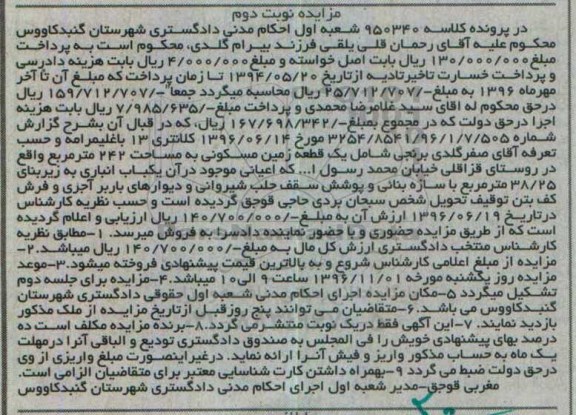 مزایده نوبت دوم
در پرونده کلاسه ۹۵۰۳۴۰ شعبه اول احکام مدنی دادگستری شهرستان گنبدکاووس
محکوم علیه آقای رحمان قلی یلقی فرزند بیرام گلدی، محکوم است به پرداخت
مبلغ ۱۳۰/۰۰۰/۰۰۰ ریال بابت اصل خواسته و مبلغ ۴/۰۰۰/۰۰۰ ریال بابت هزینه دادرسی
و پرداخت خسارت تاخیرتادیه ازتاریخ ۱۳۹۴/۰۵/۲۰ تا زمان پرداخت که مبلغ آن تا آخر
مهرماه ۱۳۹۶ به مبلغ-/۲۵/۷۱۲/۷۰۷ ریال محاسبه میگردد جمعا -/۱۵۹/۷۱۲/۷۰۷ ریال
درحق محکوم له اقای سید غلامرضا محمدی و پرداخت مبلغ-/۷/۹۸۵/۶۳۵ ریال بابت هزینه
اجرا درحق دولت که در مجموع بمبلغ-/۱۶۷/۶۹۸/۳۴۲ ریال، که در قبال آن بشرح گزارش
شماره ۳۲۵۴/۸۵۴۱/۹۶/۱/۷/۵۰۵ مورخ ۱۳۹۶/۰۶/۱۴ کلانتری ۱۳ باغلیمرامه و حسب
تعرفه آقای صفرگلدی برنجی شامل یک قطعه زمین مسکونی به مساحت ۲۴۲ مترمربع واقع
در روستای قزاقلی خیابان محمد رسول ا... که اعیانی موجود درآن یکباب انباری به زیربنای
۳۸/۲۵ مترمربع با سازه بنائی و پوشش سقف حلب شیروانی و دیوارهای باربر آجری و فرش
کف بتن توقیف تحویل شخص سبحان بردی حاجی قوجق گردیده است و حسب نظریه کارشناس
درتاریخ ۱۳۹۶/۰۶/۱۹ ارزش آن به مبلغ-/۱۴۰/۷۰۰/۰۰۰ ریال ارزیابی و اعلام گردیده
است که از طریق مزایده حضوری و با حضور نماینده دادسرا به فروش میرسد. ۱-مطابق نظریه
کارشناس منتخب دادگستری ارزش کل مال به مبلغ-/۱۴۰/۷۰۰/۰۰۰ ریال میباشد.۲-
مزایده از مبلغ اعلامی کارشناس شروع و به بالاترین قیمت پیشنهادی فروخته میشود.۳-موعد
مزایده روز یکشنبه مورخه ۱۳۹۶/۱۱/۰۱ ساعت ۹ الی۱۰ میباشد.۴-مزایده برای جلسه دوم
تشکیل میگردد ۵-مکان مزایده اجرای احکام مدنی شعبه اول حقوقی دادگستری شهرستان
گنبدکاووس می باشد.۶-متقاضیان می توانند پنج روزقبل ازتاریخ مزایده از ملک مذکور
بازدید نمایند. ۷-این آگهی فقط دریک نوبت منتشر می گردد.۸-برنده مزایده مکلف است ده
درصد بهای پیشنهادی خویش را فی المجلس به صندوق دادگستری تودیع و الباقی آنرا درمهلت
یک ماه به حساب مذکور واریز و فیش آنرا ارائه نماید. درغیراینصورت مبلغ واریزی از وی
درحق دولت ضبط می گردد ۹-بهمراه داشتن کارت شناسایی معتبر برای متقاضیان الزامی است.
مغربی قوجق-مدیر شعبه اول اجرای احکام مدنی دادگستری شهرستان گنبدکاووس